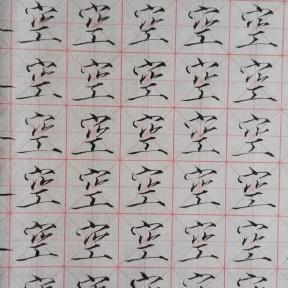 空空空空空
空空空空空
空空空空空
空空空空空
空空空空空
空空空空空